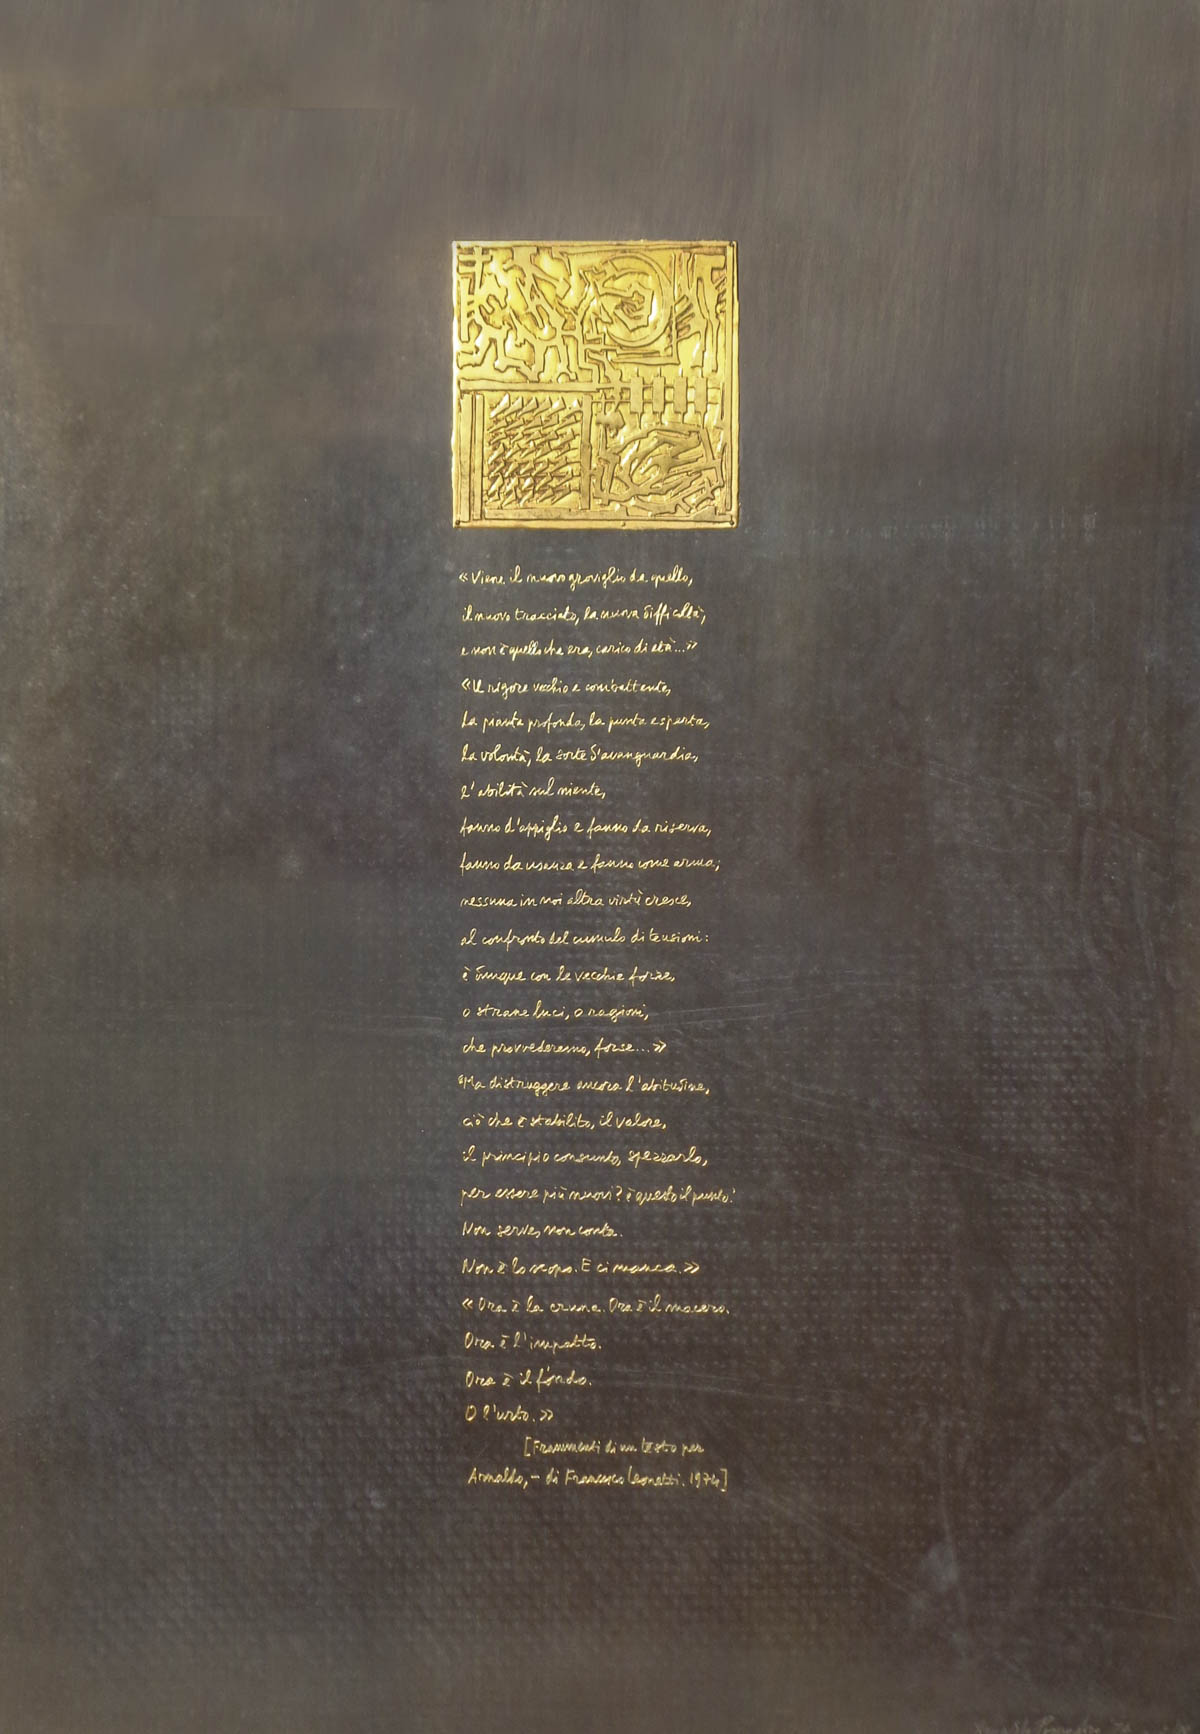 «Viene il nuovo groviglio da quello,
il nuovo tracciato, la nuova difficoltà,
e non è quello che era, carico di età...»
«Il rigore vecchio e combattente,
la pianta profonda, la punta esperta,
la volontà, la sorte d'avanguardia,
l'abilità sul niente,
fanno d'appiglio e fanno da riserva,
fanno da usanza e fanno come arma;
nessuna in noi altra virtù cresce,
al confronto del cumulo di tensioni:
è dunque con le vecchie forze,
o strane luci, o ragioni,
che provvederemo, forse...»
«Ma distruggere ancora l'abitudine,
ciò che è stabilito, il valore,
il principio consunto, spezzarlo,
per essere più nuovi? è questo il punto?
Non serve, non conta.
Non è lo scopo. E ci manca.»
«Ora è la cruna. Ora è il macero.
Ora è l'impatto.
Ora è il fondo.
O l'urto.»
[Frammenti di un testo per
Arnaldo, – di Francesco Leonetti. 1974]